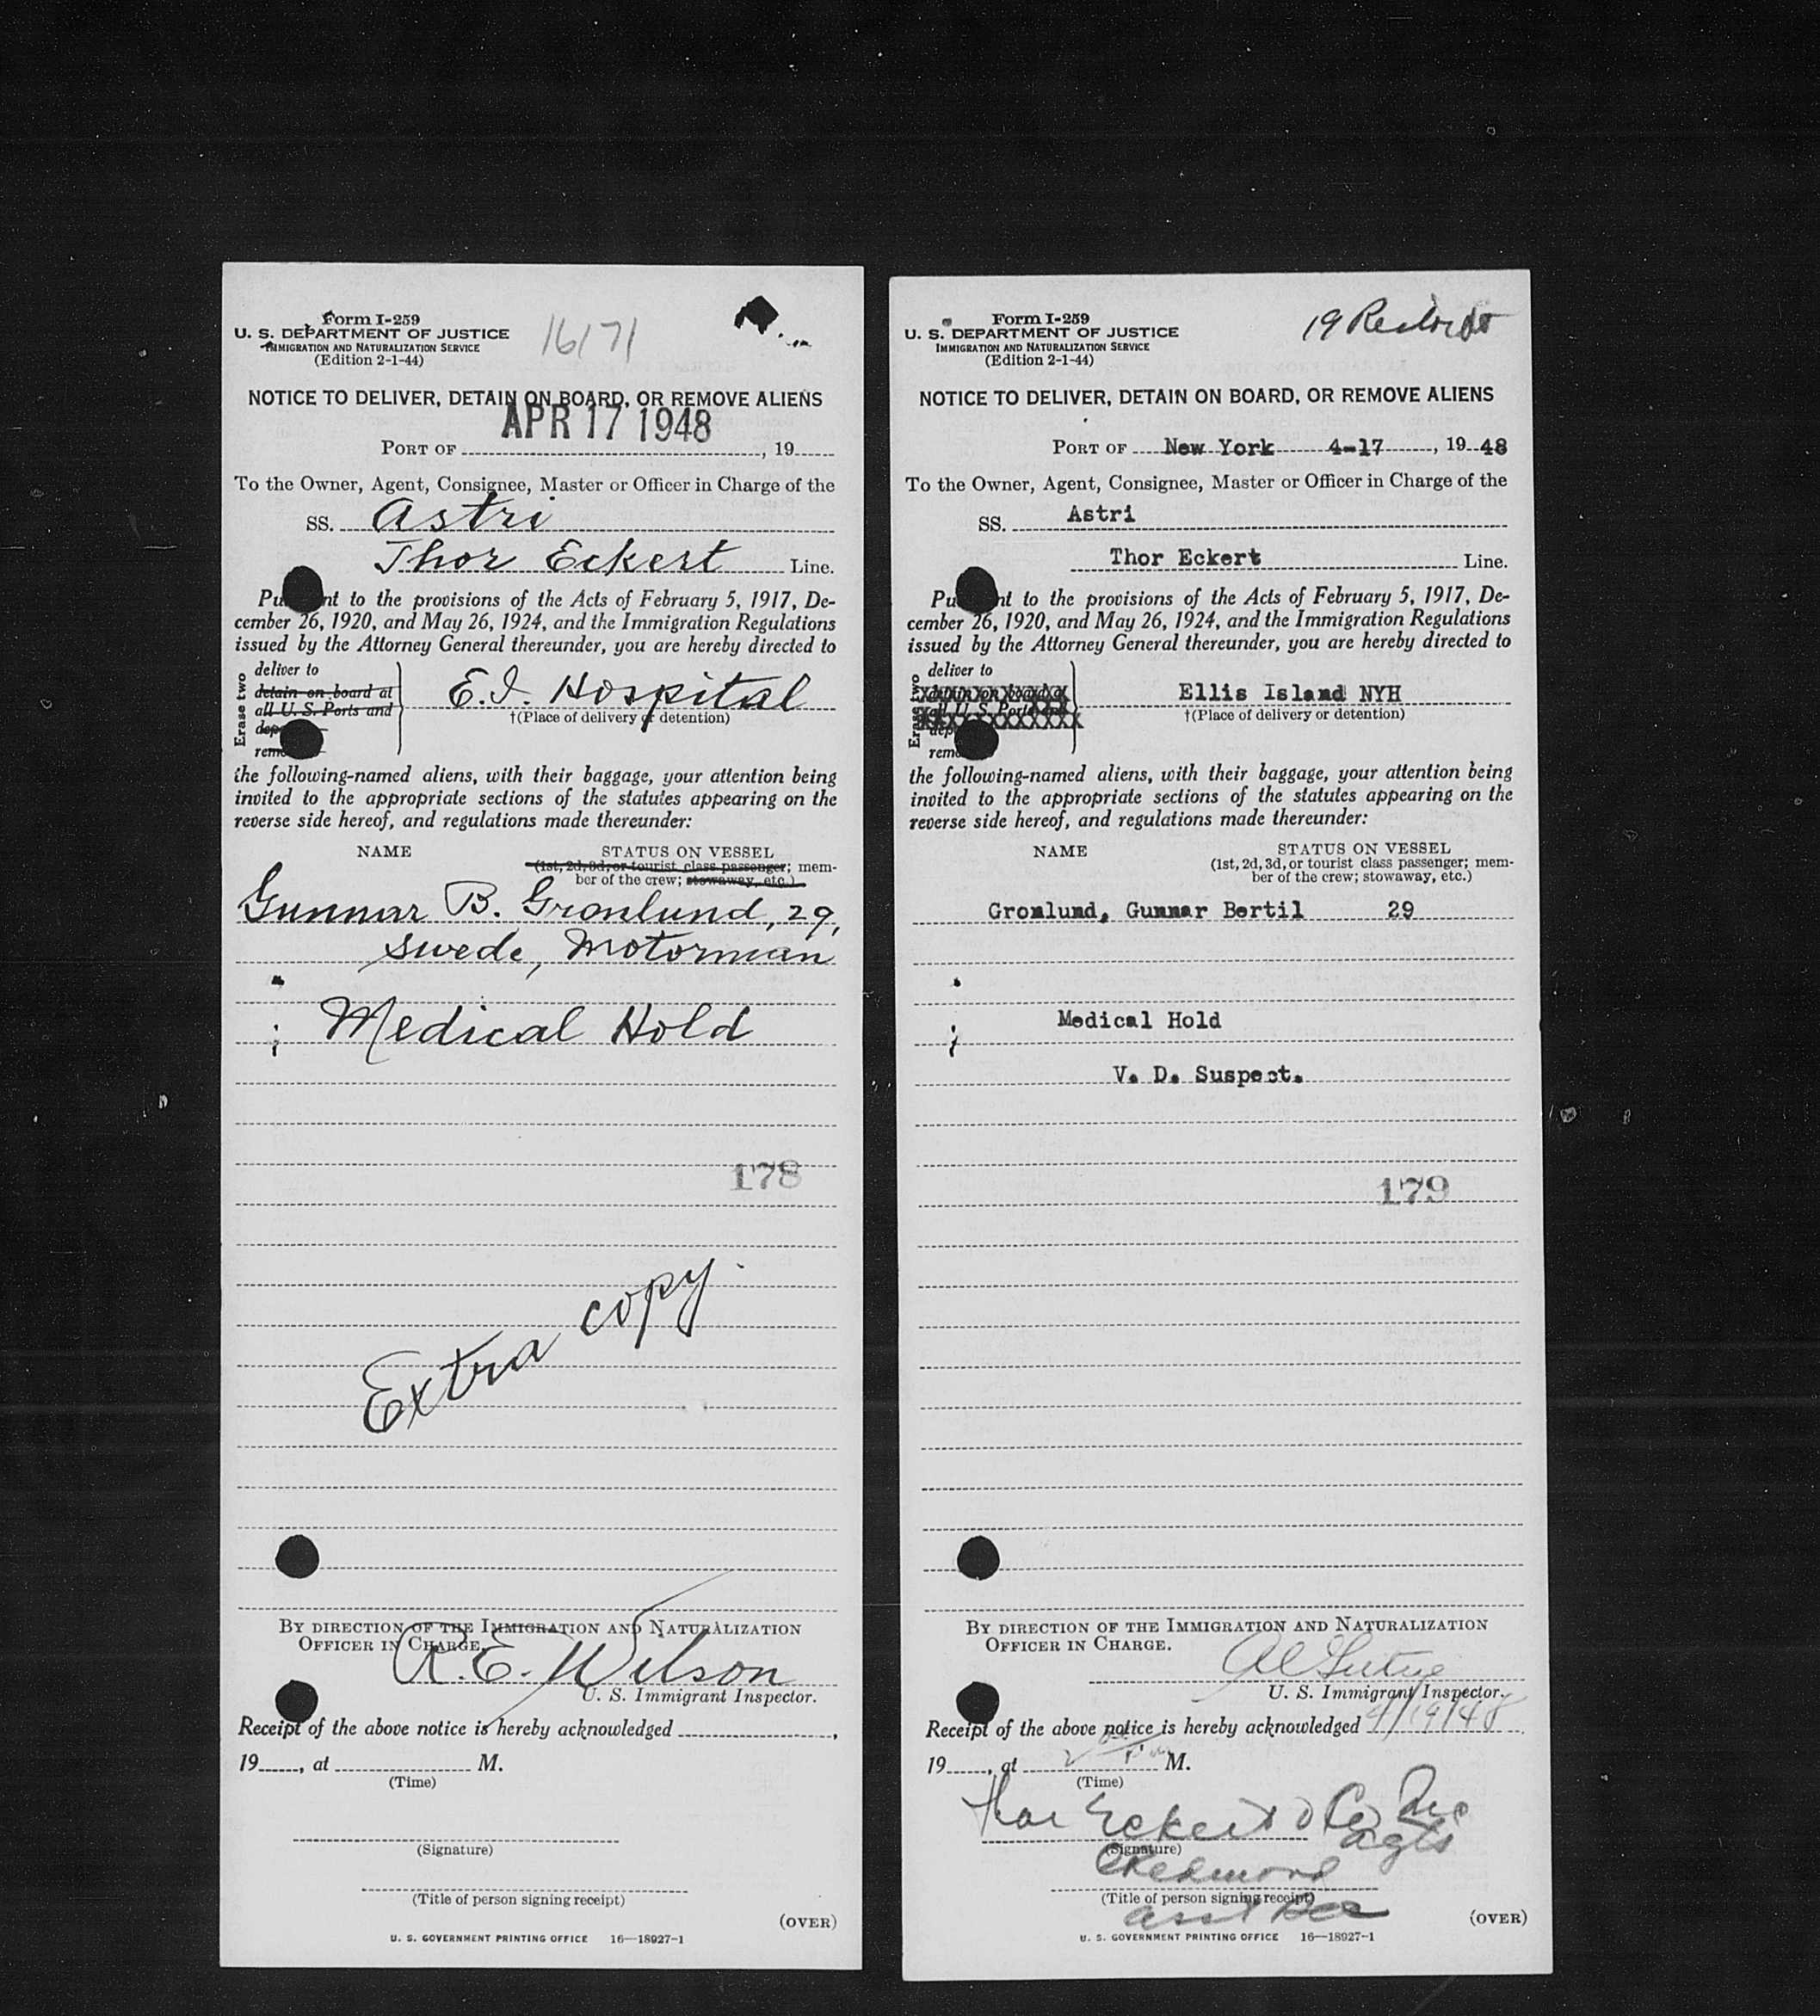 Form I-259
U. S. DEPARTMENT OF JUSTICE
IMMIGRATION AND NATURALIZATION SERVICE
(Edition 2-1-44)
16171
NOTICE TO DELIVER, DETAIN ON BOARD, OR REMOVE ALIENS
APR 17 1948
PORT OF , 19
To the Owner, Agent, Consignee, Master or Officer in Charge of the
SS. Astri
Thor Eckert Line.
Pu nt to the provisions of the Acts of February 5, 1917, De-
cember 26, 1920, and May 26, 1924, and the Immigration Regulations
issued by the Attorney General thereunder, you are hereby directed to
Erase two
deliver to
detain on board at
all U. S. Ports and
dep
rem
E.I. Hospital
†(Place of delivery or detention)
the following-named aliens, with their baggage, your attention being
invited to the appropriate sections of the statutes appearing on the
reverse side hereof, and regulations made thereunder:
NAME STATUS ON VESSEL
(1st, 2d, 3d, or tourist class passenger; mem-
ber of the crew; stowaway, etc.)
Gunnar B. Gronlund, 29,
swede, Motorman
Medical Hold
178
Extra copy
BY DIRECTION OF THE IMMIGRATION AND NATURALIZATION
OFFICER IN CHARGE.
R. E. Wilson
U. S. Immigrant Inspector.
Receipt of the above notice is hereby acknowledged ,
19 , at M.
(Time)
(Signature)
(Title of person signing receipt)
(OVER)
U. S. GOVERNMENT PRINTING OFFICE 16—18927-1
Form I-259
U. S. DEPARTMENT OF JUSTICE
IMMIGRATION AND NATURALIZATION SERVICE
(Edition 2-1-44)
19
NOTICE TO DELIVER, DETAIN ON BOARD, OR REMOVE ALIENS
PORT OF New York 4-17 , 19 48
To the Owner, Agent, Consignee, Master or Officer in Charge of the
SS. Astri
Thor Eckert Line.
Pu nt to the provisions of the Acts of February 5, 1917, De-
cember 26, 1920, and May 26, 1924, and the Immigration Regulations
issued by the Attorney General thereunder, you are hereby directed to
Erase two
deliver to
detain on board at
all U. S. Ports and
dep
rem
Ellis Island NYH
†(Place of delivery or detention)
the following-named aliens, with their baggage, your attention being
invited to the appropriate sections of the statutes appearing on the
reverse side hereof, and regulations made thereunder:
NAME STATUS ON VESSEL
(1st, 2d, 3d, or tourist class passenger; mem-
ber of the crew; stowaway, etc.)
Gronlund, Gunnar Bertil 29
Medical Hold
V. D. Suspect.
179
BY DIRECTION OF THE IMMIGRATION AND NATURALIZATION
OFFICER IN CHARGE.
U. S. Immigrant Inspector.
Receipt of the above notice is hereby acknowledged 4/19/48
19 , at M.
(Time)
Thor Eckert & Co Inc
agts
(Signature)
Redmond
(Title of person signing receipt)
(OVER)
U. S. GOVERNMENT PRINTING OFFICE 16—18927-1